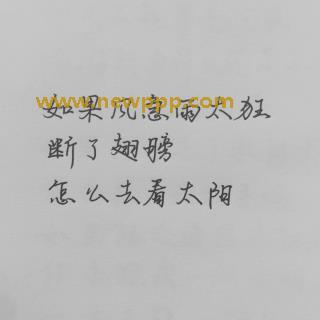 www.newppp.com
如果风急雨太狂
断了翅膀
怎么去看太阳